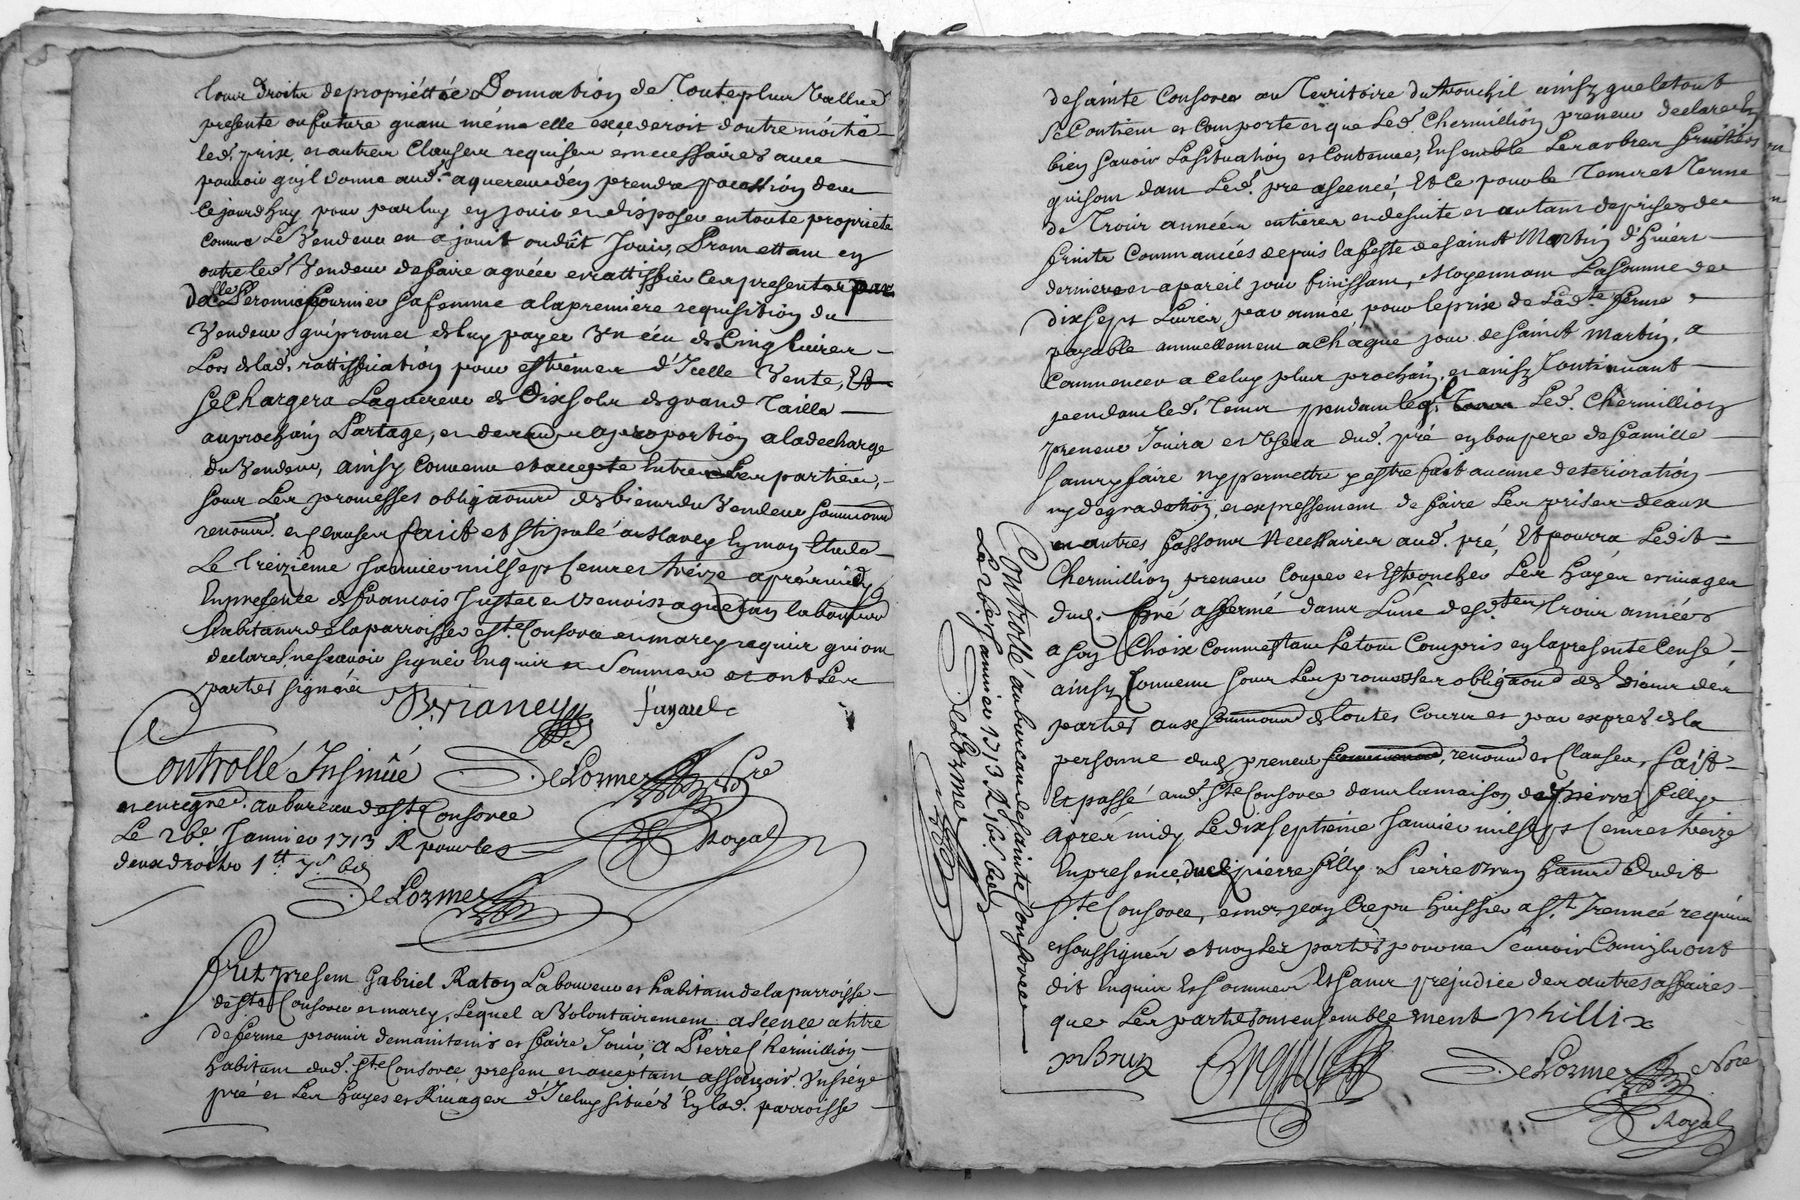 leurs droitz de propriettée Donnation de Toute plus Vallue
presente ou future quant méme elle excederoit d'outre moitié
led. prix, et autres Clauses requises et necessaires avec
pouvoir qu'il donne aud. aquereur d'en prendre pocession dez
Cejourd'huy pour par luy en jouir et disposer en toute proprieté
comme Le Vendeur en a jouit ou dût Jouir, Promettant en
outre led. Vendeur de faire agréer et rattiffier les presentes par
delle Peronne fournier sa femme a la premiere requisition du
Vendeur qui promet de luy payer Un écu de Cinq livres
Lors de lad. rattiffication pour estreines d'Icelle Vente, Et
se Chargera L'aquereur de Dix sols de grand Taille
au prochain Partage, et de rendre a proportion a la decharge
du Vendeur, ainsy Convenu et accepté Entre les parties,
sous Les promesses obligaõns de bienr du Vendeur soumiõns
renonõns et clauses fait et stipulé a Marcy En mon Etude
Le Treizième Janvier mil sept Cent et treize aprés midy
En presence de francois Juste et Benoist aguetan laboureurs
habitans de la parroisse de ste. Consorce et marcy requis qui ont
declaré ne scavoir signer Enquis et Sommés et ont Les
parties signées
Brianey fayard
Controllé Insinué DeLorme Nre
et enregné. au bureau de ste Consorce
Le 26e. Janvier 1713 R pour les Royal
deux droitz 1tt 7s 6d
DeLorme
Fut present Gabriel Raton Laboureur et habitant de la parroisse
de Ste Consorce et marcy, Lequel a Volontairement ascencé a titre
de ferme promis de maintenir et faire Jouir, a Pierre Chermillion
habitant dud. Ste Consorce present et acceptant assavoir Un sien
pré et Les Hayes et Rivages d'Iceluy situés En lad. parroisse
de sainte Consorce au Territoire du tronchil ainsy que le tout
se Contient et Comporte et que Led. Chermillion preneur declare
bien scavoir La situation et Contenue, Ensemble Les arbres fruitiers
qui sont dans Led. pré ascencé, Et Ce pour le Tems et Terme
de Trois années entieres et de suite et autant de prises des
fruits Commancées depuis la feste de Saint Martin d'hiver
derniere et a pareil jour finissant, Moyennant La Somme de
dix sept Livres par année pour le prix de Lade. ferme
payable annuellement a Chaque jour de Saint Martin, a
Commencer a Celuy plus prochain, et ainsy Continuant
pendant led. Tems pendant leql. Led. Chermillion
preneur Jouira et Usera dud. pré en bon pere de famille
sans y faire ny permettre y estre fait aucune deterioration
ny degradation, et expressement de faire Les prises deaux
et autres fassons Necessaires aud. pré, Et pourra Ledit
Chermillion preneur Couper et Etroncher Les Hayes et rivages
dud. pré affermé dans L'une desdtes trois années
a son Choix Comme Etant Le tout Compris en la presente Cense
ainsy Convenu sous Les promesses obligãons de bienr des
parties aux soumiõns de toutes Cours et par expres de la
personne dud. preneur, renonõns et Clauses, fait
Et passé aud. Ste Consorce dans la maison de Pierre filly
aprés midy Le dix septieme Janvier mil sept Cent et treize
En presence dud. pierre filly Pierre Brun Habitans Dudit
Ste Consorce, et mre jean Crepu Huissier a St. Irennée requis
et soussignés et non Les parties pour ne Scavoir Comm'ils ont
dit Enquis Et Sommés Et sans prejudice des autres affaires
que Les parties ont ensemblement philli
p Brun DeLorme Nre
Royal
Controllé au bureau de sainte Consorce
Le 26e Janvier 1713. R 16s. 6d.
DeLorme